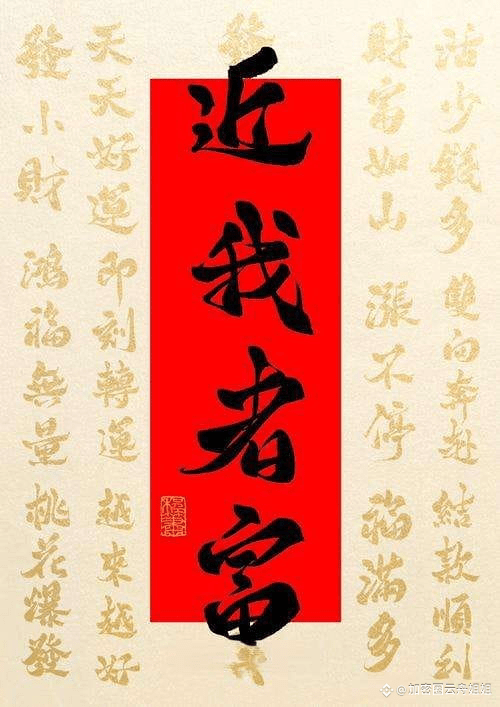 活少錢多 雙向奔赴 結款順利
財富如山 漲不停 福滿多
發
近我者富
天天好運 即刻轉運 越來越好
發小財 鴻福無量 桃花爆發